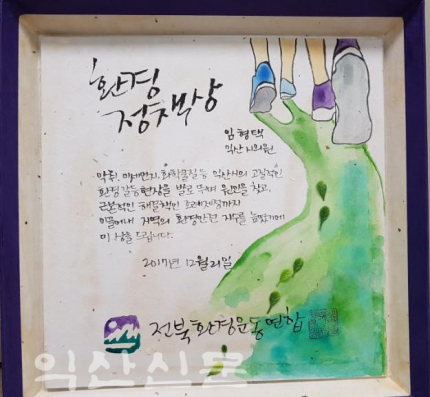 환경
정책상
임형택
익산시의원
악취, 미세먼지, 화학물질 등 익산시의 고질적인
환경갈등현상을 발로 뛰며 원인을 찾고,
근본적인 해결책인 조례제정까지
이끌어내 지역의 환경안전 지수를 높였기에
이 상을 드립니다.
2017년 12월 21일
전북환경운동연합
익산신문